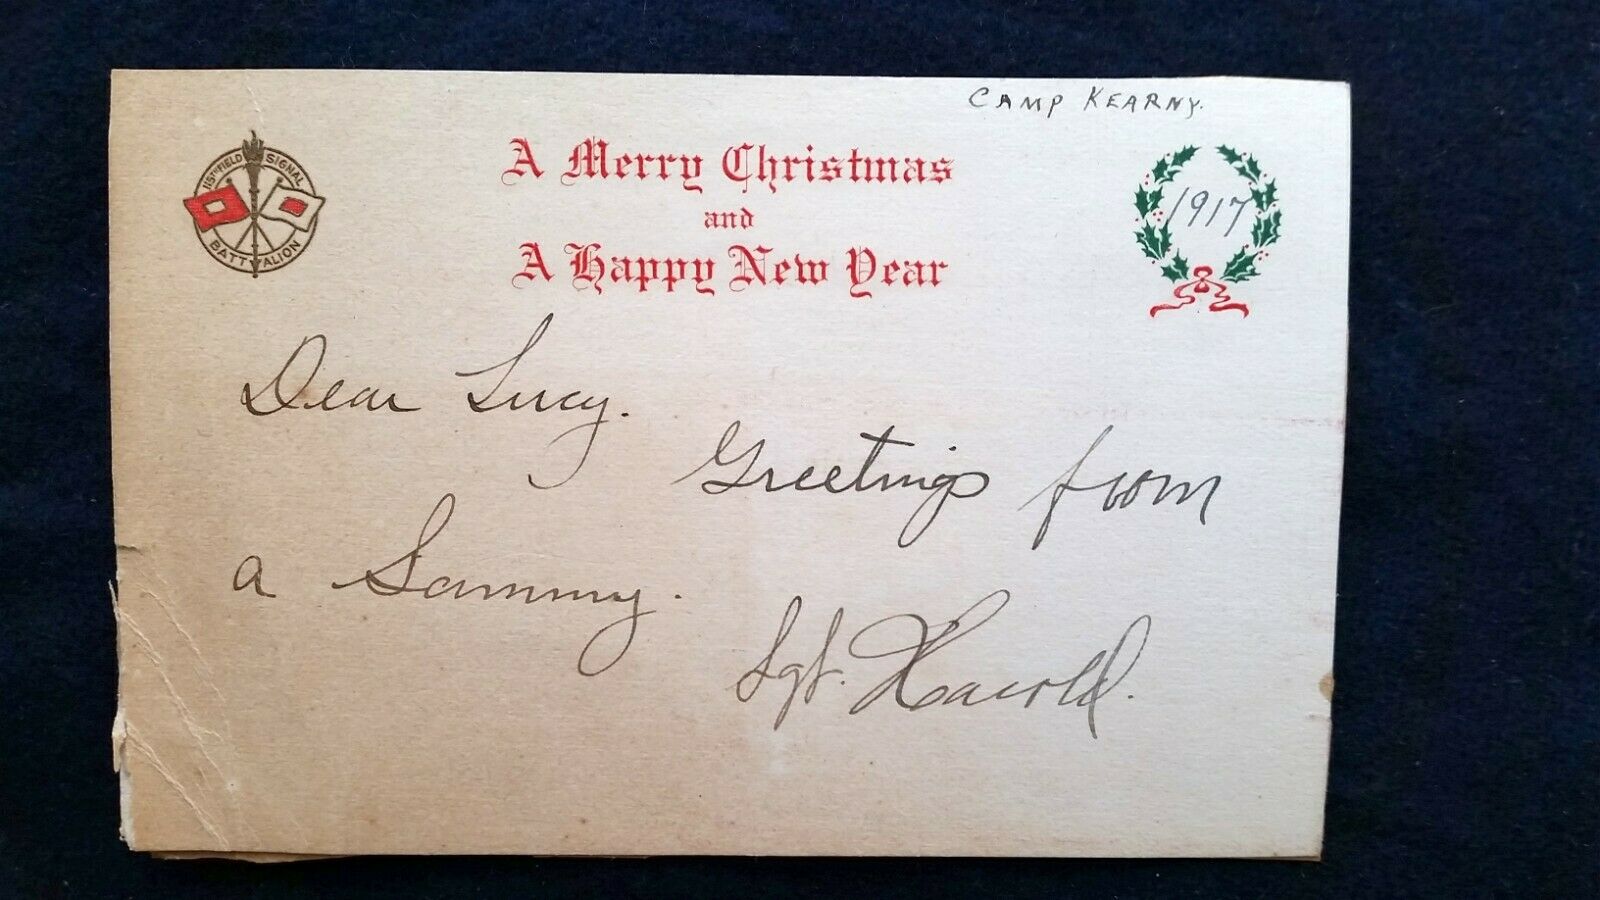 CAMP KEARNY.
115TH FIELD SIGNAL
BATTALION
A Merry Christmas
and
A Happy New Year
1917
Dear Lucy.
Greetings from
a Sammy.
Sgt. Harold.